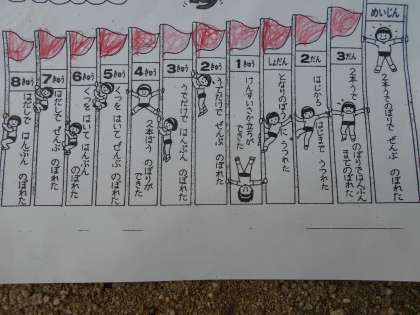 めいじん
2本うでのぼりで ぜんぶ のぼれた
3だん
2本うでのぼりではんぶんまでのぼれた
2だん
はじから はじまで うつれた
しょだん
となりのぼうに うつれた
1きゅう
けんすいさか立ちが できた
2きゅう
うでだけで ぜんぶ のぼれた
3きゅう
うでだけで はんぶん のぼれた
4きゅう
2本ぼう のぼりが できた
5きゅう
くつを はいて ぜんぶ のぼれた
6きゅう
くつを はいて はんぶん のぼれた
7きゅう
はだしで ぜんぶ のぼれた
8きゅう
はだしで はんぶん のぼれた